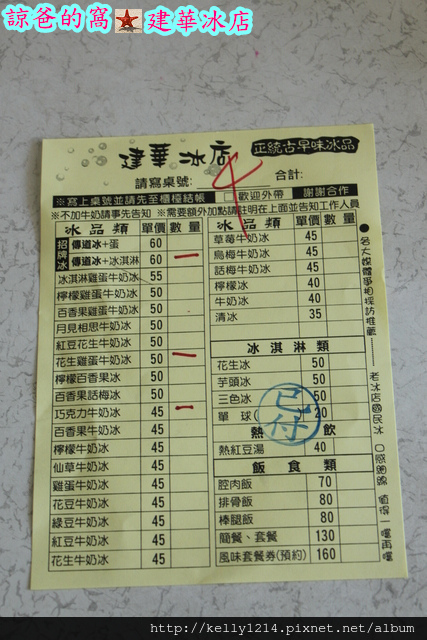 諒爸的窩 建華冰店
建華冰店
正統古早味冰品
請寫桌號: 4 合計:
※寫上桌號並請先至櫃檯結帳 □歡迎外帶 謝謝合作
※不加牛奶請事先告知 ※需要額外加點請註明在上面並告知工作人員
冰品類 單價 數量
招牌冰
傳道冰+蛋 60
傳道冰+冰淇淋 60 一
冰淇淋雞蛋牛奶冰 55
檸檬雞蛋牛奶冰 50
百香果雞蛋牛奶冰 50
月見相思牛奶冰 50
紅豆花生牛奶冰 50
花生雞蛋牛奶冰 50 一
檸檬百香果冰 50
百香果話梅冰 50
巧克力牛奶冰 45 一
百香果牛奶冰 45
檸檬牛奶冰 45
仙草牛奶冰 45
雞蛋牛奶冰 45
花豆牛奶冰 45
綠豆牛奶冰 45
紅豆牛奶冰 45
花生牛奶冰 45
冰品類 單價 數量
草莓牛奶冰 45
烏梅牛奶冰 45
話梅牛奶冰 45
檸檬冰 40
牛奶冰 40
清冰 35
冰淇淋類
花生冰 50
芋頭冰 50
三色冰 50
單球 20
已付
熱飲
熱紅豆湯 40
飯食類
腔肉飯 70
排骨飯 80
棒腿飯 80
簡餐、套餐 130
風味套餐券(預約) 160
●各大媒體爭相採訪推薦……… 老冰店國民冰 口感細緻 值得一嚐再嚐
http://kelly1214.pixnet.net/album